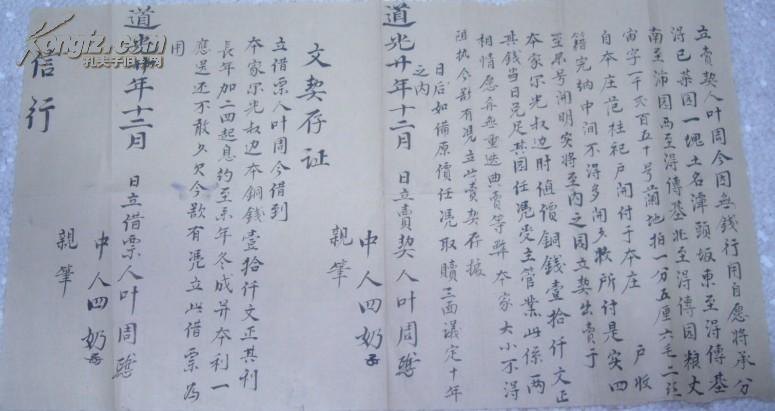 立賣契人叶周今因無錢行用自愿將承分
得已菜园一塊土名潭頭坂東至得傳基
南至沛园西至得傳基北至得傳园粮丈
宙字一千弍百五十号蘭地拍一分五厘六毛二
自本庄范桂祀戸闹付于本庄 戸收
籍完纳中间不得多闹少救所付是实四
至来号闹明实將至内之园立契出賣于
本家尔光叔边时值價銅錢壹拾仟文正
其錢当日兑足其园任凴受主管業此係兩
相情愿并無重迭典賣等弊本家大小不得
阻执今欲有凴立此賣契存據
日后如備原價任凴取贖三面議定十年
之内
道光廿年十二月 日立賣契人叶周
中人四奶
親筆
文契存证
立借票人叶周今借到
本家尔光叔边本銅錢壹拾仟文正其利
長年加二四起息约至来年冬成并本利一
應足还不敢少欠今欲有凴立此借票為
用
道光廿年十二月 日立借票人叶周
中人四奶
親筆
信行
Kongfz.com
孔夫子旧书网